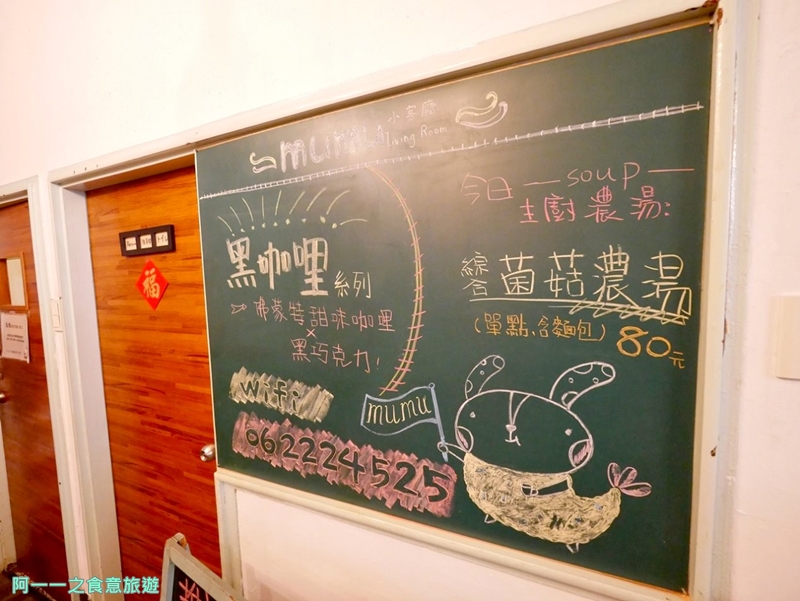 mumu
小客廳
Living Room
福
黑咖哩系列
佛蒙特甜味咖哩
×
黑巧克力!
wifi
062224525
mumu
今日 — soup —
主廚濃湯:
綜合菌菇濃湯
(單點、含麵包) 80元
阿一一之食意旅遊